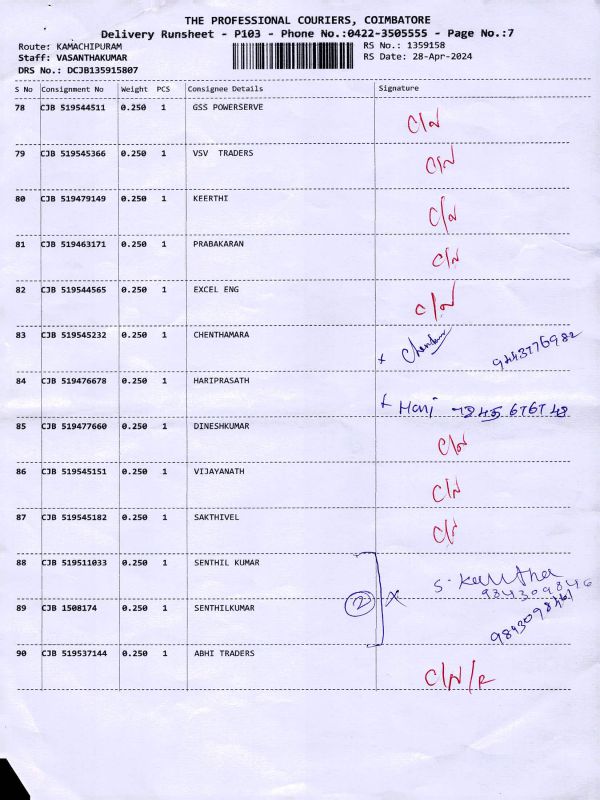 THE PROFESSIONAL COURIERS, COIMBATORE
Delivery Runsheet - P103 - Phone No.:0422-3505555 - Page No.:7
Route: KAMACHIPURAM RS No.: 1359158
Staff: VASANTHAKUMAR RS Date: 28-Apr-2024
DRS No.: DCJB135915807
S No Consignment No Weight PCS Consignee Details Signature
78 CJB 519544511 0.250 1 GSS POWERSERVE C/N
79 CJB 519545366 0.250 1 VSV TRADERS C/N
80 CJB 519479149 0.250 1 KEERTHI C/N
81 CJB 519463171 0.250 1 PRABAKARAN C/N
82 CJB 519544565 0.250 1 EXCEL ENG C/N
83 CJB 519545232 0.250 1 CHENTHAMARA x 9443776982
84 CJB 519476678 0.250 1 HARIPRASATH x Hari
85 CJB 519477660 0.250 1 DINESHKUMAR C/N
86 CJB 519545151 0.250 1 VIJAYANATH C/N
87 CJB 519545182 0.250 1 SAKTHIVEL C/N
88 CJB 519511033 0.250 1 SENTHIL KUMAR S.
934309846
89 CJB 1508174 0.250 1 SENTHILKUMAR 2 x
90 CJB 519537144 0.250 1 ABHI TRADERS C/N/R